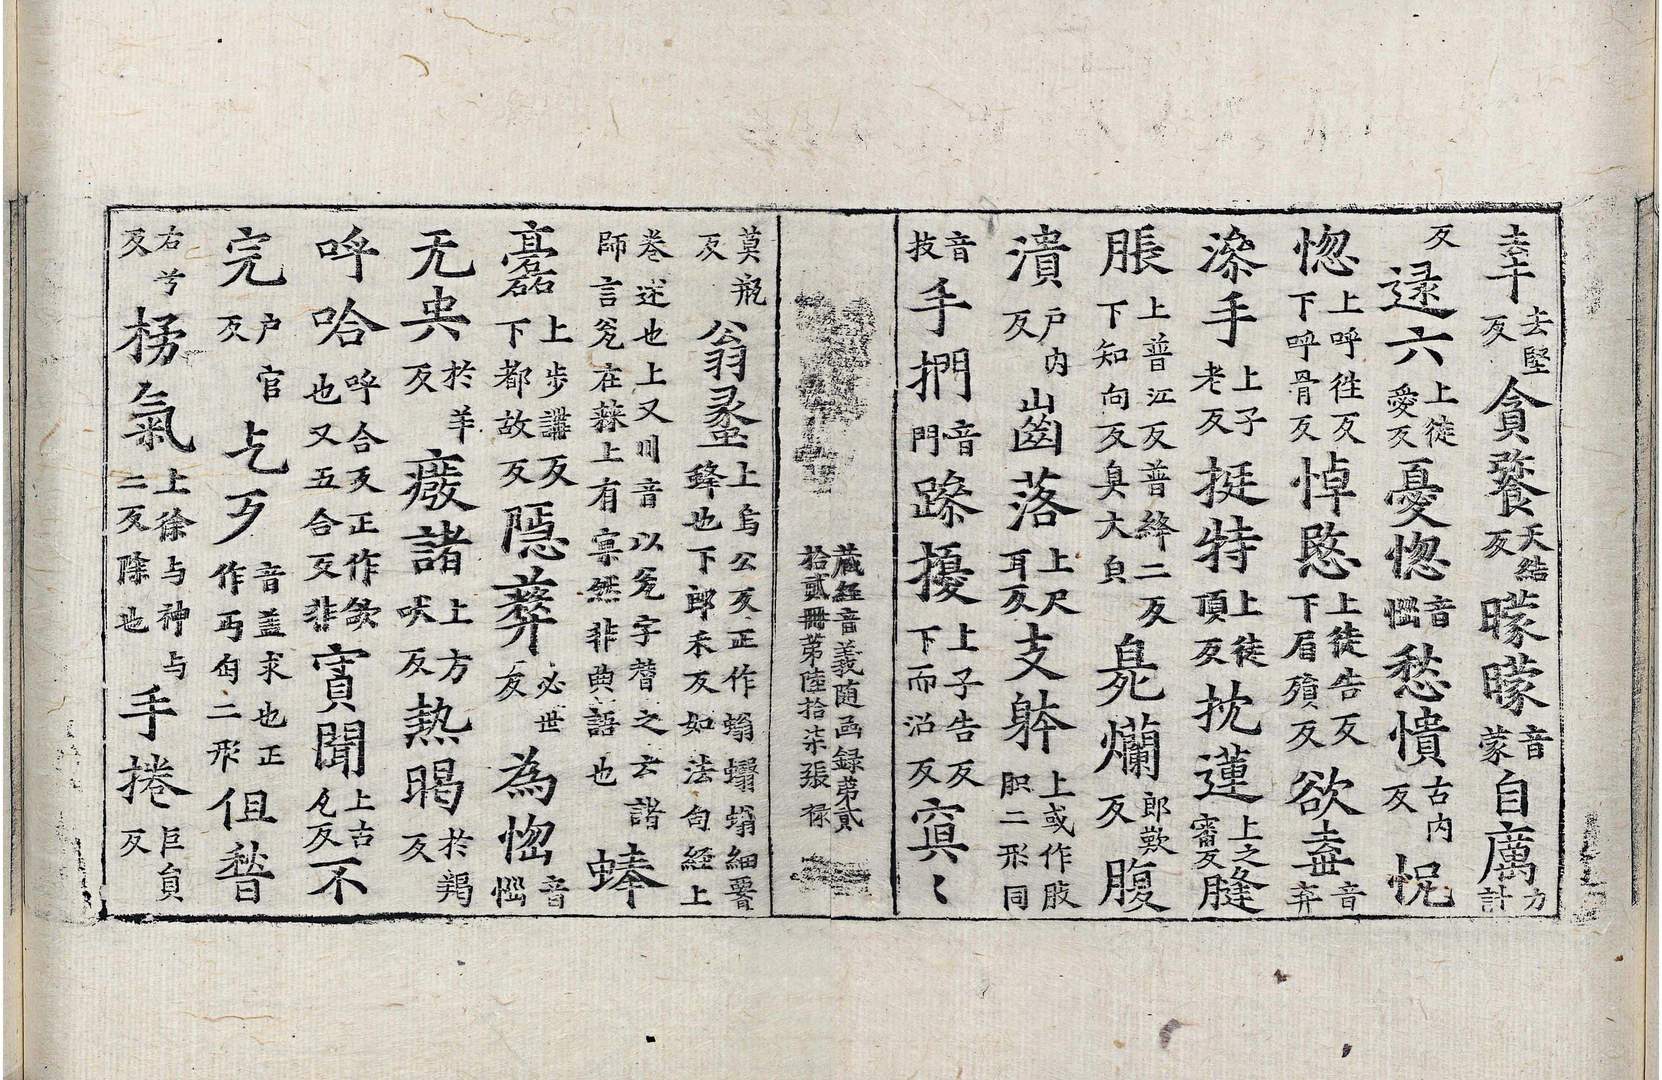 𦍌去堅反貪餮天結反曚曚音蒙自厲力計
反逯六上徒愛反憂惚音惱愁憒古內反怳
惚上呼徃反下呼骨反悼愍上徒告反下眉殞反欲𡔷音弃
滲手上子老反挺特上徒頂反抌蓮上之審反䏺
脹上普江反普絳二反下知向反臭大自㒵爛郎歎反腹
潰戶内反齒落上尺耳反支躰上或作肢胑二形同
音技手捫音門躁擾上子告反下而沼反寘〻
藏經音義随函録第貳拾貳冊第陸拾柒張禄
莫瓶反翁䗬上烏公反正作螉䗬螉細䁥䗬也下郎禾反如法句經上
卷述也上又川音以甕字替之云諸師言甕在䔧上有稟然非典語也蜯
礚上步講反下都故反隱蔽必世反為惚音惱
无央於羊反癈諸上方吠反熱暍於羯反
呼哈呼合反正作欱也又五合反非賔聞上古九反不
完户官反乞丐音盖求也正作丐匄二形但朁
右兮反梬氣上徐与神与二反除也手捲巨負反